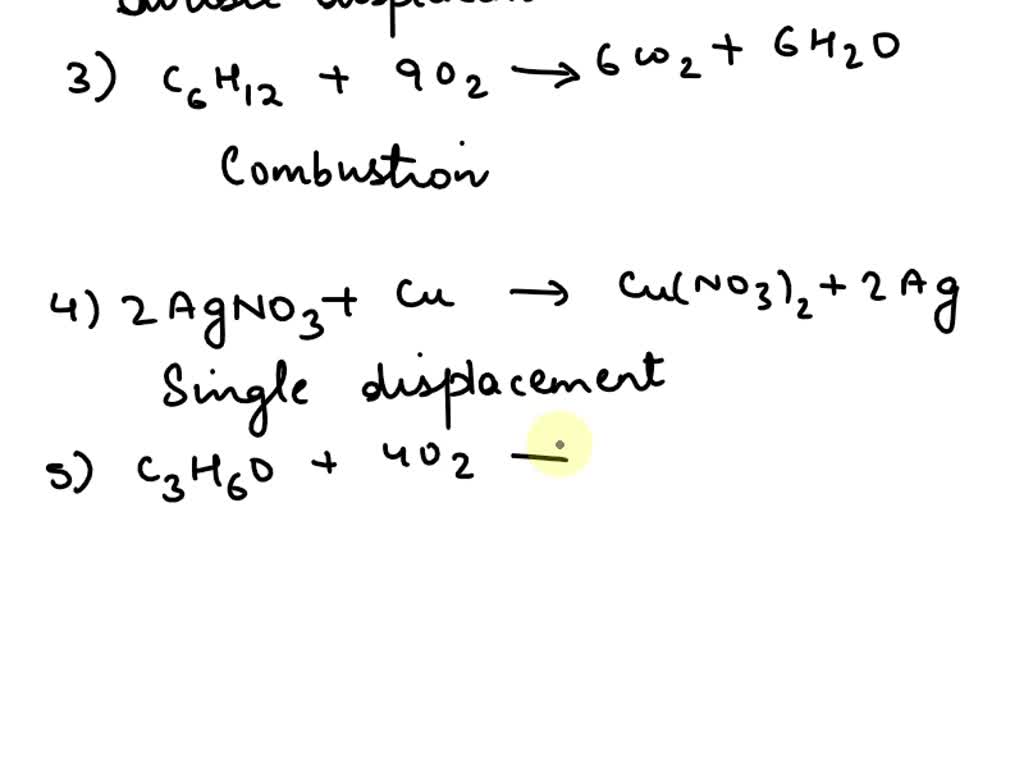 3) C₆H₁₂ + 9O₂ → 6CO₂ + 6H₂O
Combustion
4) 2AgNO₃ + Cu → Cu(NO₃)₂ + 2Ag
Single displacement
5) C₃H₆O + 4O₂ —